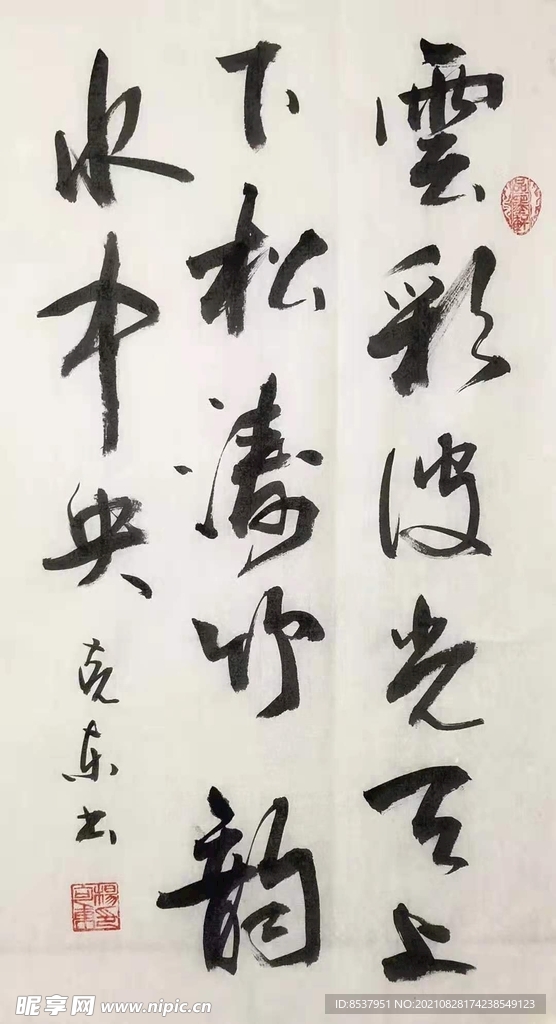 雲彩波光天上
下松濤竹韻
水中央
克東书
昵享网 www.nipic.cn
ID:8537951 NO:20210828174238549123